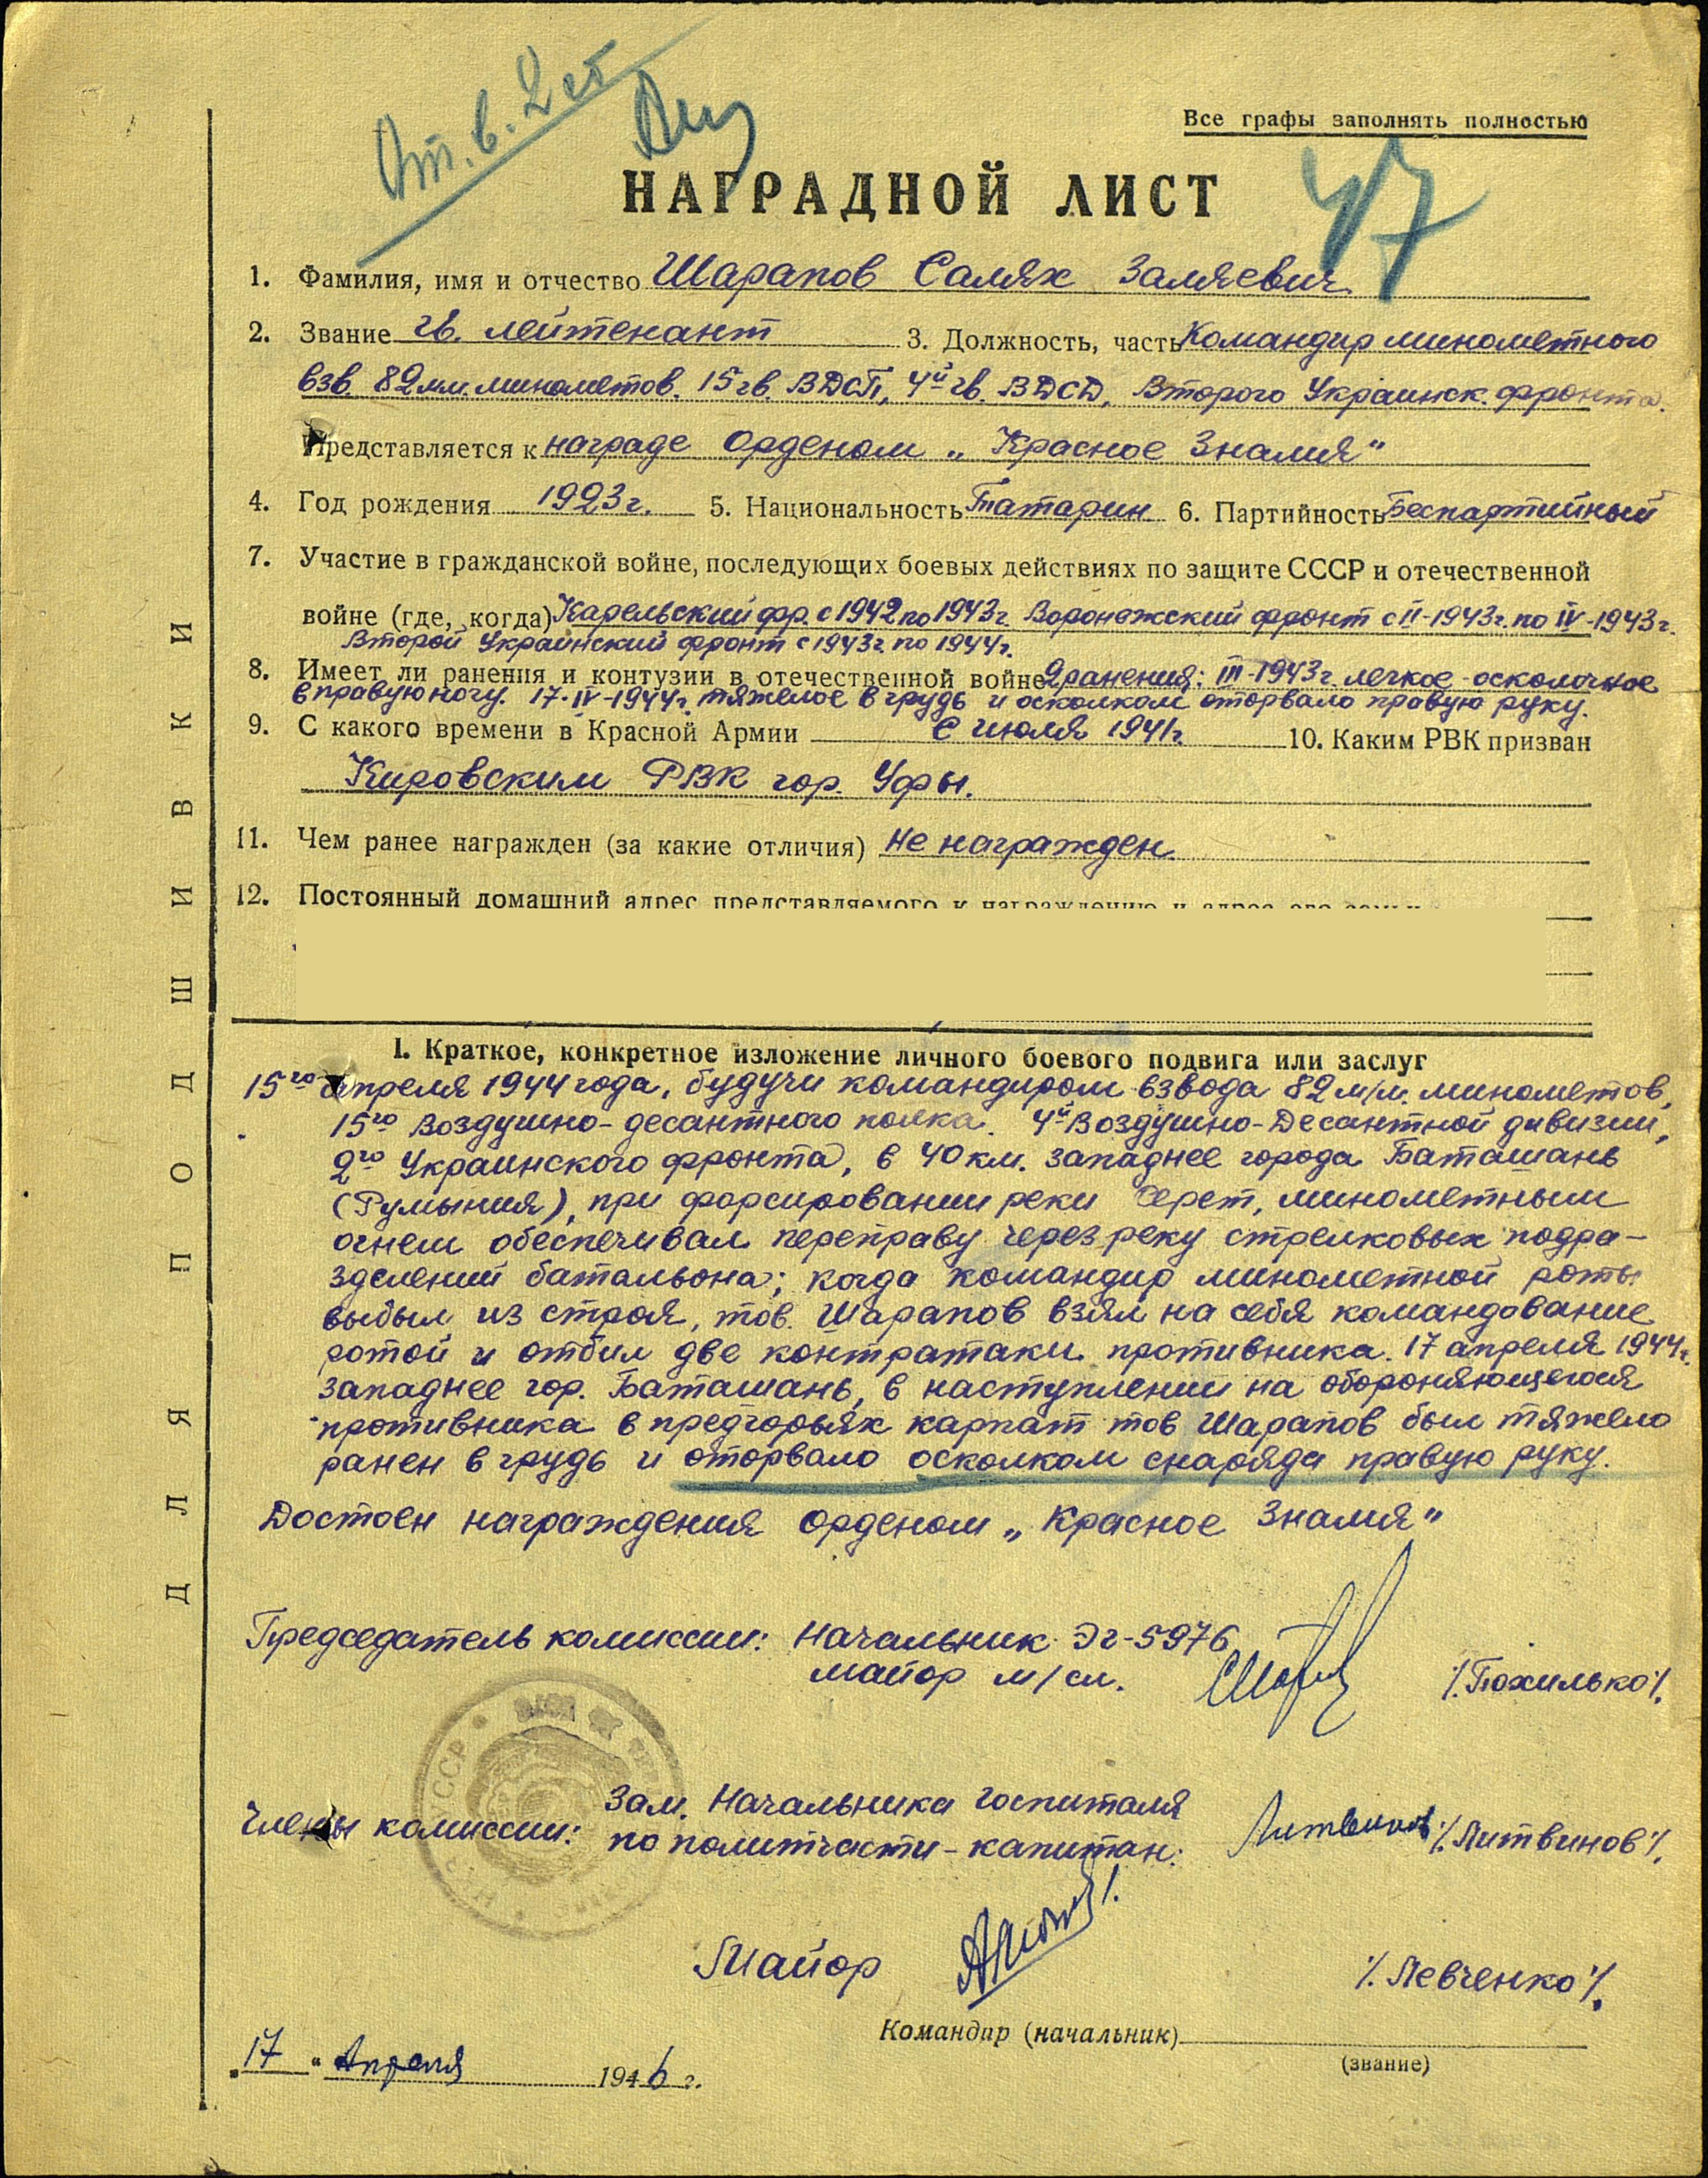 От. в. 2 ст
Все графы заполнять полностью
47
НАГРАДНОЙ ЛИСТ
1. Фамилия, имя и отчество Шарапов Салях Заляевич
2. Звание гв. лейтенант 3. Должность, часть Командир минометного
взв. 82 мм. минометов. 15 гв. ВДСП, 4й гв. ВДСД, Второго Украинск. фронта.
Представляется к награде орденом „Красное Знамя"
4. Год рождения 1923 г. 5. Национальность Татарин 6. Партийность Беспартийный
7. Участие в гражданской войне, последующих боевых действиях по защите СССР и отечественной
войне (где, когда) Карельский фр. с 1942 по 1943 г. Воронежский фронт с II-1943 г. по IV-1943 г.
Второй Украинский фронт с 1943 г. по 1944 г.
8. Имеет ли ранения и контузии в отечественной войне 2 ранения: III-1943 г. легкое-осколочное
в правую ногу. 17-IV-1944 г. тяжелое в грудь и осколком оторвало правую руку.
9. С какого времени в Красной Армии С июля 1941 г. 10. Каким РВК призван
Кировским РВК гор. Уфы.
11. Чем ранее награжден (за какие отличия) Не награжден.
12. Постоянный домашний адрес представляемого к награждению и адрес его семьи
I. Краткое, конкретное изложение личного боевого подвига или заслуг
15го апреля 1944 года, будучи командиром взвода 82 м/м. минометов,
15го Воздушно-десантного полка. 4й Воздушно-Десантной дивизии,
2го Украинского фронта, в 40 км. западнее города Баташань
(Румыния), при форсировании реки Серет, минометным
огнем обеспечивал переправу через реку стрелковых подра-
зделений батальона; когда командир минометной роты
выбыл из строя, тов. Шарапов взял на себя командование
ротой и отбил две контратаки противника. 17 апреля 1944 г.
западнее гор. Баташань, в наступлении на обороняющегося
противника в предгорьях карпат тов Шарапов был тяжело
ранен в грудь и оторвало осколком снаряда правую руку.
Достоен награждения орденом „Красное Знамя"
Председатель комиссии: Начальник ЭГ-5976
майор м/сл. /.Похилько/.
Члены комиссии: Зам. Начальника госпиталя
по политчасти - капитан: Литвинов /.Литвинов/.
Майор /.Левченко/.
Командир (начальник)
(звание)
„17" Апреля 1946 г.
ДЛЯ ПОДШИВКИ